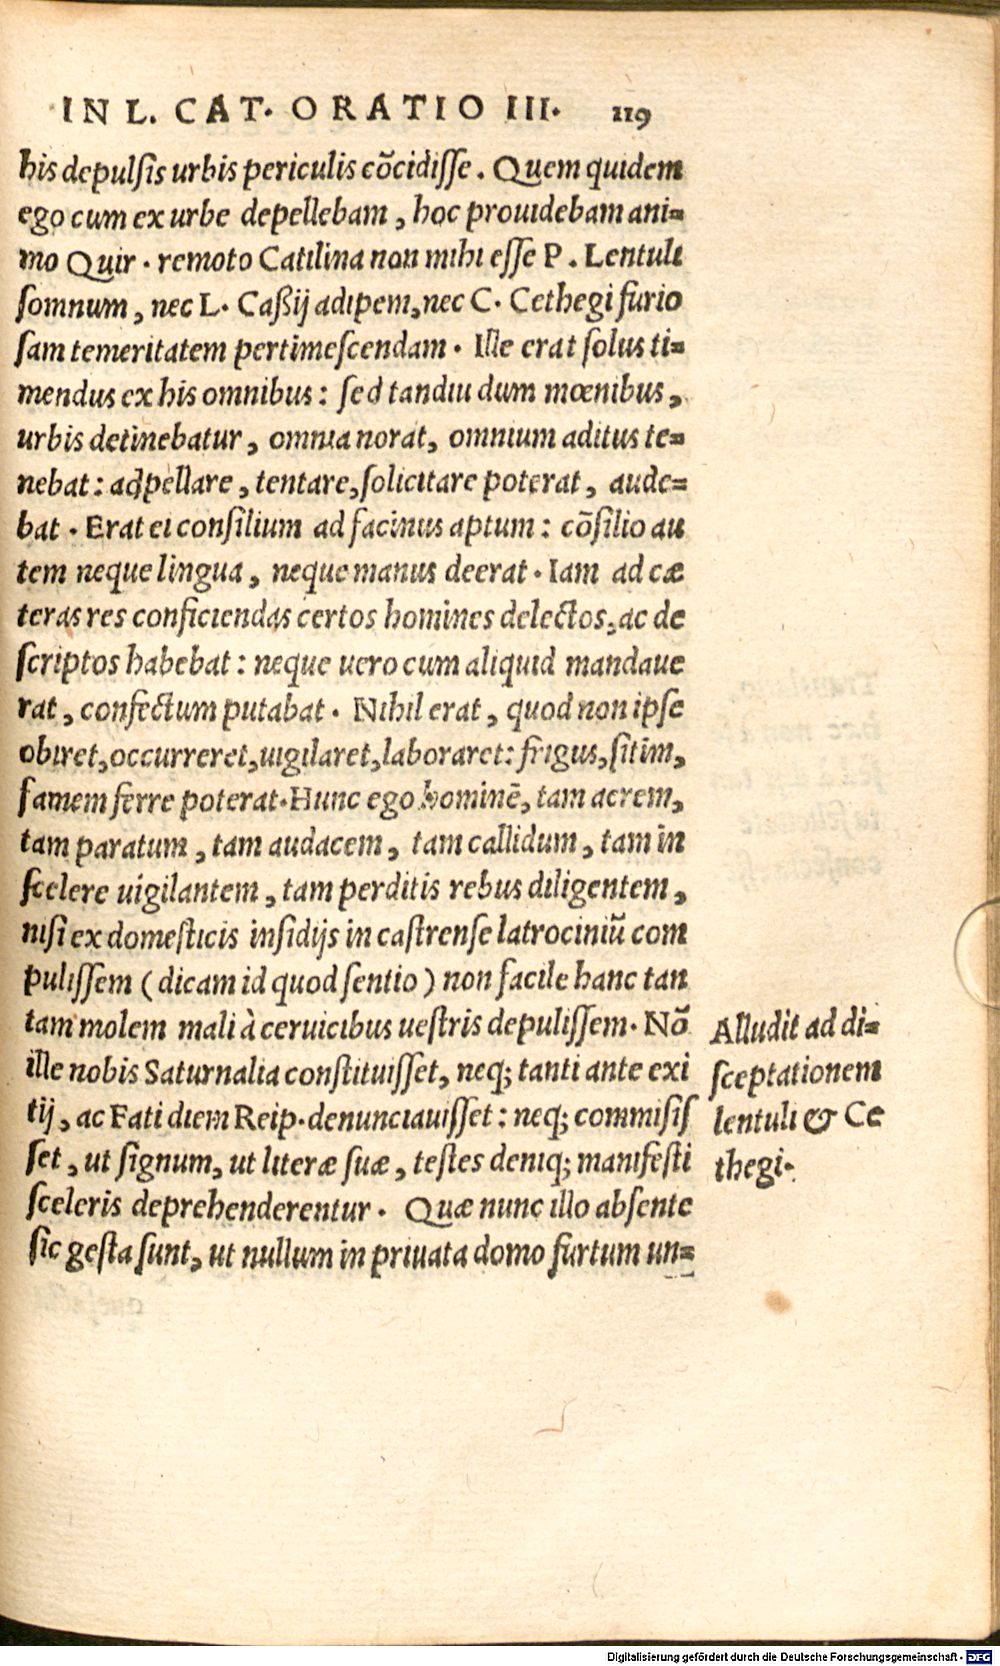 IN L. CAT. ORATIO III. 119
his depulsis urbis periculis cõcidisse. Quem quidem
ego cum ex urbe depellebam, hoc prouidebam ani=
mo Quir. remoto Catilina non mihi esse P. Lentuli
somnum, nec L. Caßij adipem, nec C. Cethegi furio
sam temeritatem pertimescendam. Ille erat solus ti=
mendus ex his omnibus: sed tandiu dum mœnibus,
urbis detinebatur, omnia norat, omnium aditus te=
nebat: adpellare, tentare, solicitare poterat, aude=
bat. Erat ei consilium ad facinus aptum: cõsilio au
tem neque lingua, neque manus deerat. Iam ad cæ
teras res conficiendas certos homines delectos, ac de
scriptos habebat: neque uero cum aliquid mandaue
rat, confectum putabat. Nihil erat, quod non ipse
obiret, occurreret, uigilaret, laboraret: frigus, sitim,
famem ferre poterat. Hunc ego hominē, tam acrem,
tam paratum, tam audacem, tam callidum, tam in
scelere uigilantem, tam perditis rebus diligentem,
nisi ex domesticis insidijs in castrense latrociniũ com
pulissem (dicam id quod sentio) non facile hanc tan
tam molem mali à ceruicibus uestris depulissem. Nõ
ille nobis Saturnalia constituisset, neq; tanti ante exi
tij, ac Fati diem Reip. denunciauisset: neq; commisis
set, ut signum, ut literæ suæ, testes deniq; manifesti
sceleris deprehenderentur. Quæ nunc illo absente
sic gesta sunt, ut nullum in priuata domo furtum un=
Alludit ad di=
sceptationem
lentuli & Ce
thegi.
Digitalisierung gefördert durch die Deutsche Forschungsgemeinschaft - DFG